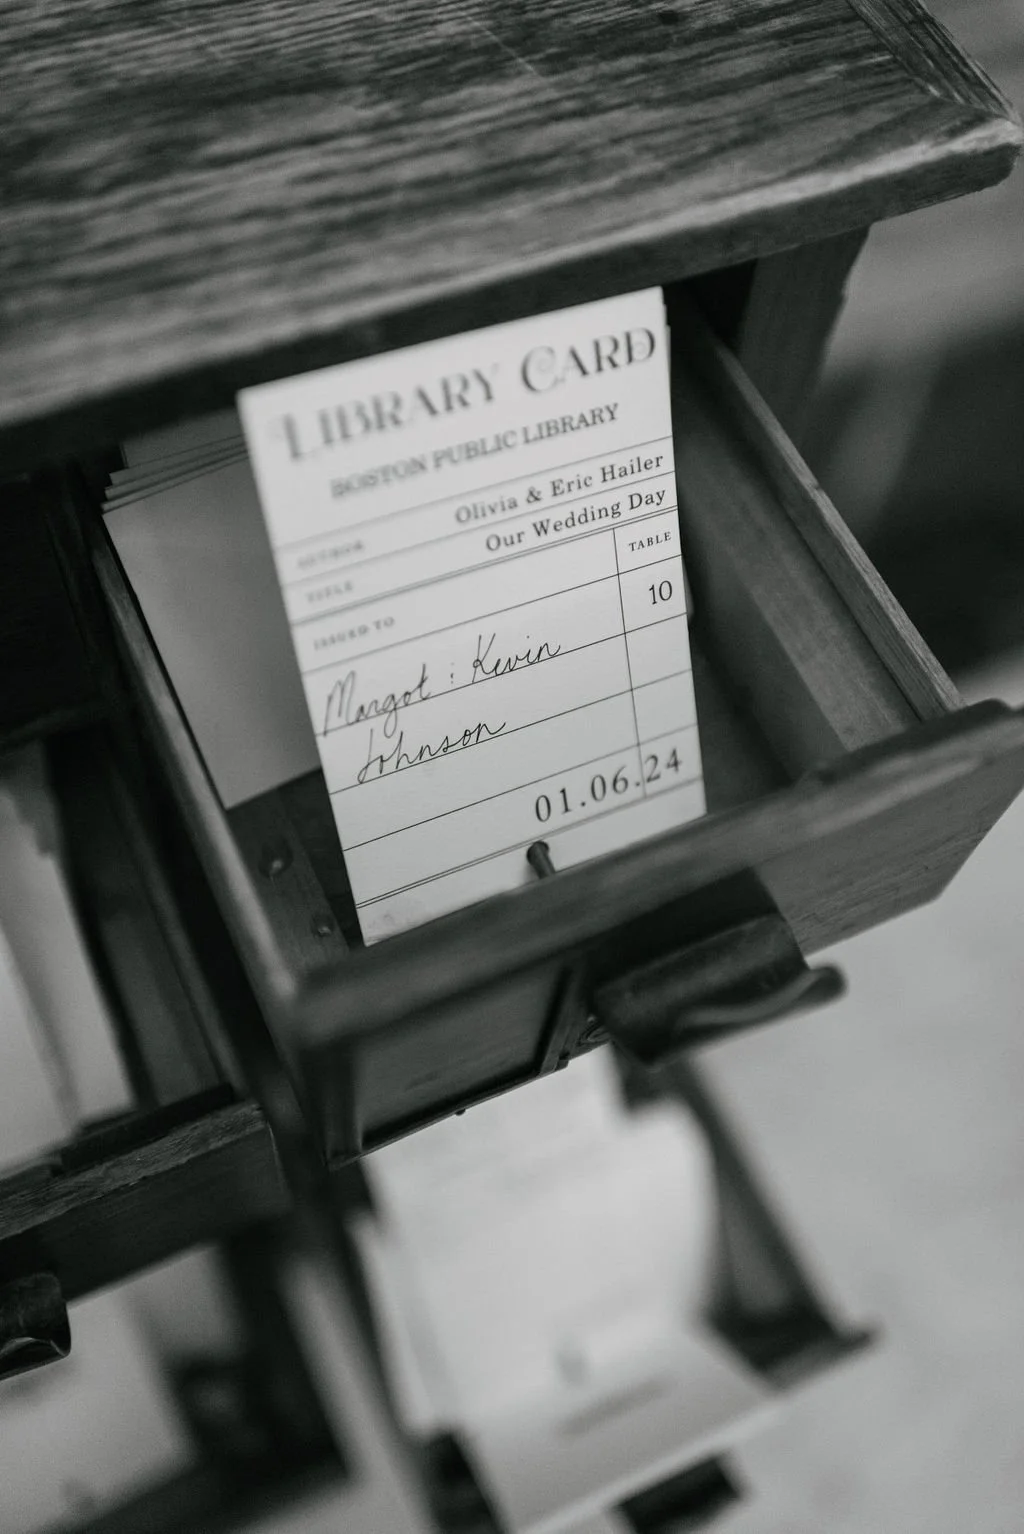 LIBRARY CARD
BOSTON PUBLIC LIBRARY
AUTHOR Olivia & Eric Hailer
TITLE Our Wedding Day
ISSUED TO TABLE
10
Margot & Kevin
Johnson
01.06.24